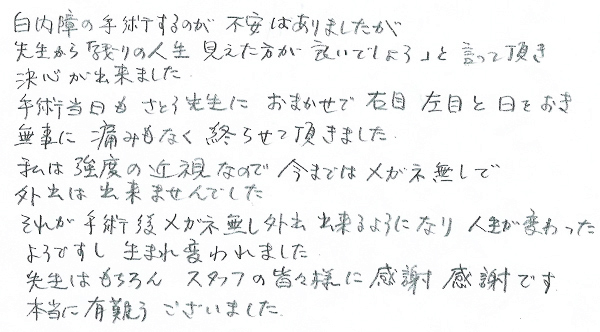 白内障の手術するのが 不安はありましたが
先生から「残りの人生 見えた方が 良いでしょう」と 言って頂き
決心が出来ました.
手術当日も さとう先生に おまかせで 右目 左目と 日をおき
無事に 痛みもなく 終らせて頂きました.
私は 強度の近視なので 今までは メガネ無しで
外出は 出来ませんでした
それが 手術後 メガネ無し外出 出来るようになり 人生が変わった
ようですし 生まれ変われました
先生は もちろん スタッフの皆々様に 感謝 感謝です.
本当に 有難う ございました.